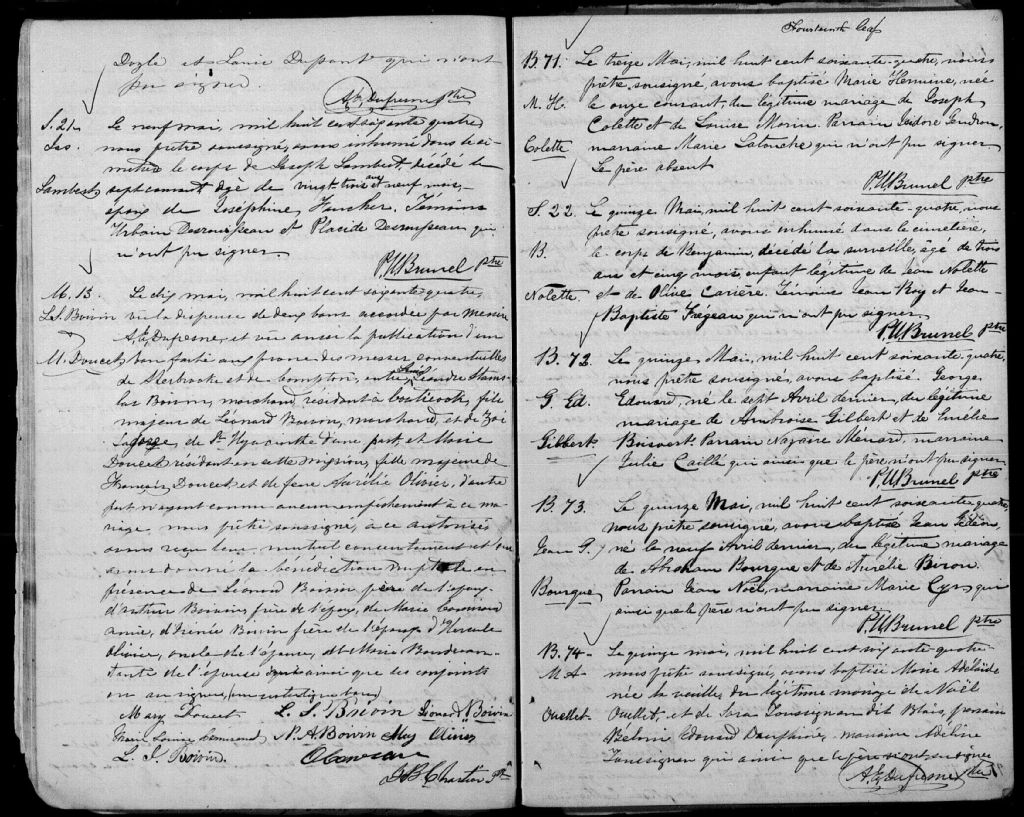 Doyle et Louise Dupont qui n'ont
pu signer.
A. E. Dufresne ptre
S. 21 Le neuf mai, mil huit cent soixante quatre
Jos. nous prêtre soussigné, avons inhumé dans le ci-
metière le corps de Joseph Lambert, décédé le
Lambert sept courant âgé de vingt-trois ans neuf mois,
époux de Joséphine Témoins
Urbain Desrousseau et Placide Desrousseau qui
n'ont pu signer.
P. U. Brunel ptre
M. 13 Le dix mai, mil huit cent soixante quatre,
L. S. Boivin vu la dispense de deux bans accordée par messire
A. E. Dufresne, et vu aussi la publication d'un
M. Doucet ban faite aux prones des messes conventuelles
de Sherbrooke et de Compton, entre Léandre Stanis-
las Boivin, marchand, résidant à Coaticook, fils
majeur de Léonard Boivin, marchand, et de Zoé
de St Hyacinthe d'une part, et Marie
Doucet résidant en cette mission, fille majeure de
François Doucet et de feue Aurélie Olivier, d'autre
part n'ayant connu aucun empêchement à ce ma-
riage nous prêtre soussigné, à ce autorisé
avons reçu leur mutuel consentement et leur
avons donné la bénédiction nuptiale en
présence de Léonard Boivin père de l'époux
d'Arthur Boivin, frère de l'époux, de Marie
amie, d'Irénée Boivin frère de l'époux d'Hercule
Olivier, oncle de l'épouse, et Marie
tante de l'épouse ainsi que les conjoints
on au signé,
Mary Doucet L. S. Boivin Léonard N. Boivin
Marie Louise N. A. Boivin Mary Olivier
L. I. Boivin.
J. B. Chartier Ptr
Fourteenth leaf
B. 71. Le treize Mai, mil huit cent soixante-quatre, nous
prêtre soussigné, avons baptisé Marie Hermine, née
M. H. le onze courant, du légitime mariage de Joseph
Colette et de Louise Morin. Parrain Isidore Gendron,
Colette marraine Marie Labonche qui n'ont pu signer
Le père absent
P. U. Brunel ptre
S. 22. Le quinze Mai, mil huit cent soixante-quatre, nous
prêtre soussigné, avons inhumé dans le cimetière,
B. le corps de Benjamin, décédé la surveille, âgé de trois
ans et cinq mois, enfant légitime de Jean Nolette
Nolette. et de Olive Carière. Témoins Jean Roy et Jean-
Baptiste Frégeau qui n'ont pu signer.
P. U. Brunel ptre
B. 72. Le quinze Mai, mil huit cent soixante quatre,
nous prêtre soussigné, avons baptisé George
G. Ed. Edouard, né le sept Avril dernier, du légitime
mariage de Ambroise Gilbert et de Emélie
Gilbert Boisvert. Parrain Nazaire Ménard, marraine
Julie Caillé qui ainsi que le père n'ont pu signer
P. U. Brunel ptre
B. 73. Le quinze Mai, mil huit cent soixante-quatre,
nous prêtre soussigné, avons baptisé Jean Gédéon,
Jean G. né le neuf Avril dernier, du légitime mariage
de Abraham Bourque et de Aurélie Biron.
Bourque Parrain Jean Noël, marraine Marie Cyr qui
ainsi que le père n'ont pu signer.
P. U. Brunel ptre
B. 74. Le quinze mai, mil huit cent soixante quatre
M. A. nous prêtre soussigné, avons baptisé Marie Adélaide
née la veille, du légitime mariage de Noël
Ouellet. Ouellet, et de Sara Toussignan dit Blais, parrain
Edouard Dauphine, marraine Adéline
Toussignan qui ainsi que le père n'ont su signer
A. E. Dufresne ptre